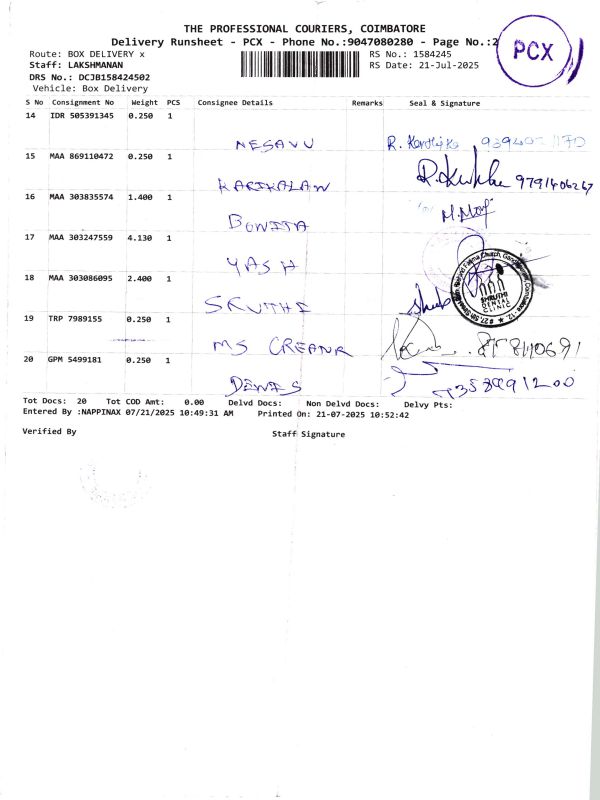 THE PROFESSIONAL COURIERS, COIMBATORE
Delivery Runsheet - PCX - Phone No.:9047080280 - Page No.:2
PCX
Route: BOX DELIVERY x RS No.: 1584245
Staff: LAKSHMANAN RS Date: 21-Jul-2025
DRS No.: DCJB158424502
Vehicle: Box Delivery
S No Consignment No Weight PCS Consignee Details Remarks Seal & Signature
14 IDR 505391345 0.250 1
NESAVU
15 MAA 869110472 0.250 1
KARIKALAN 9791406267
16 MAA 303835574 1.400 1
BONITA
17 MAA 303247559 4.130 1
YASH
18 MAA 303086095 2.400 1
SRUTHI
SHRUTHI
DENTAL
CLINIC
19 TRP 7989155 0.250 1
MS CREANR
20 GPM 5499181 0.250 1
Tot Docs: 20 Tot COD Amt: 0.00 Delvd Docs: Non Delvd Docs: Delvy Pts:
Entered By :NAPPINAX 07/21/2025 10:49:31 AM Printed On: 21-07-2025 10:52:42
Verified By Staff Signature